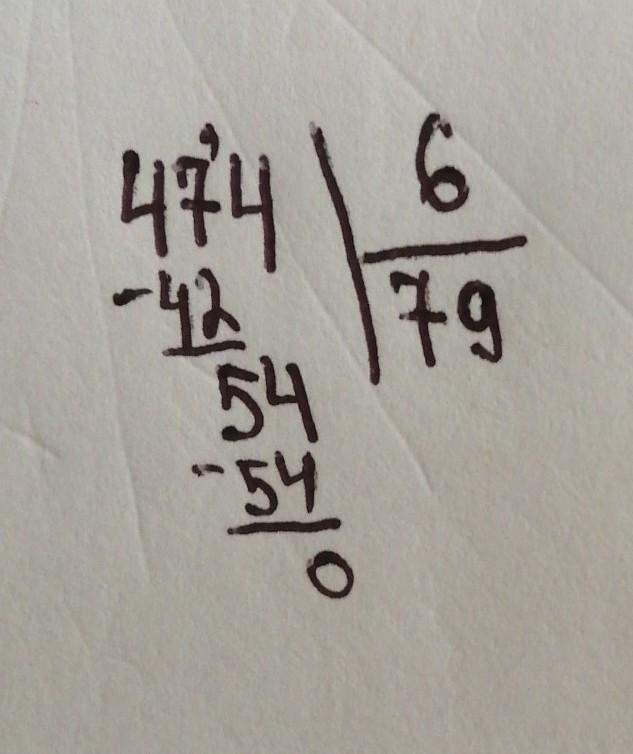 474 6
-42 79
54
-54
0